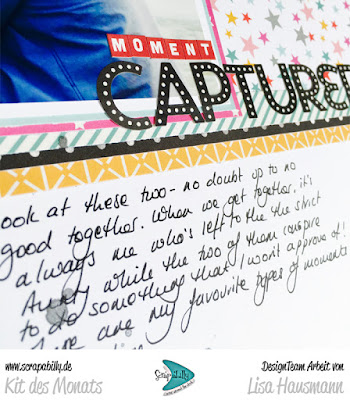 MOMENT
CAPTURED
ook at these two - no doubt up to no
good together. When we get together, it's
always me who's left to the the strict
Aunty while the two of them conspire
to do something that I won't approve of!
are my favourite types of moments
www.scrapabilly.de
Kit des Monats
Scrapabilly
DesignTeam Arbeit von
Lisa Hausmann